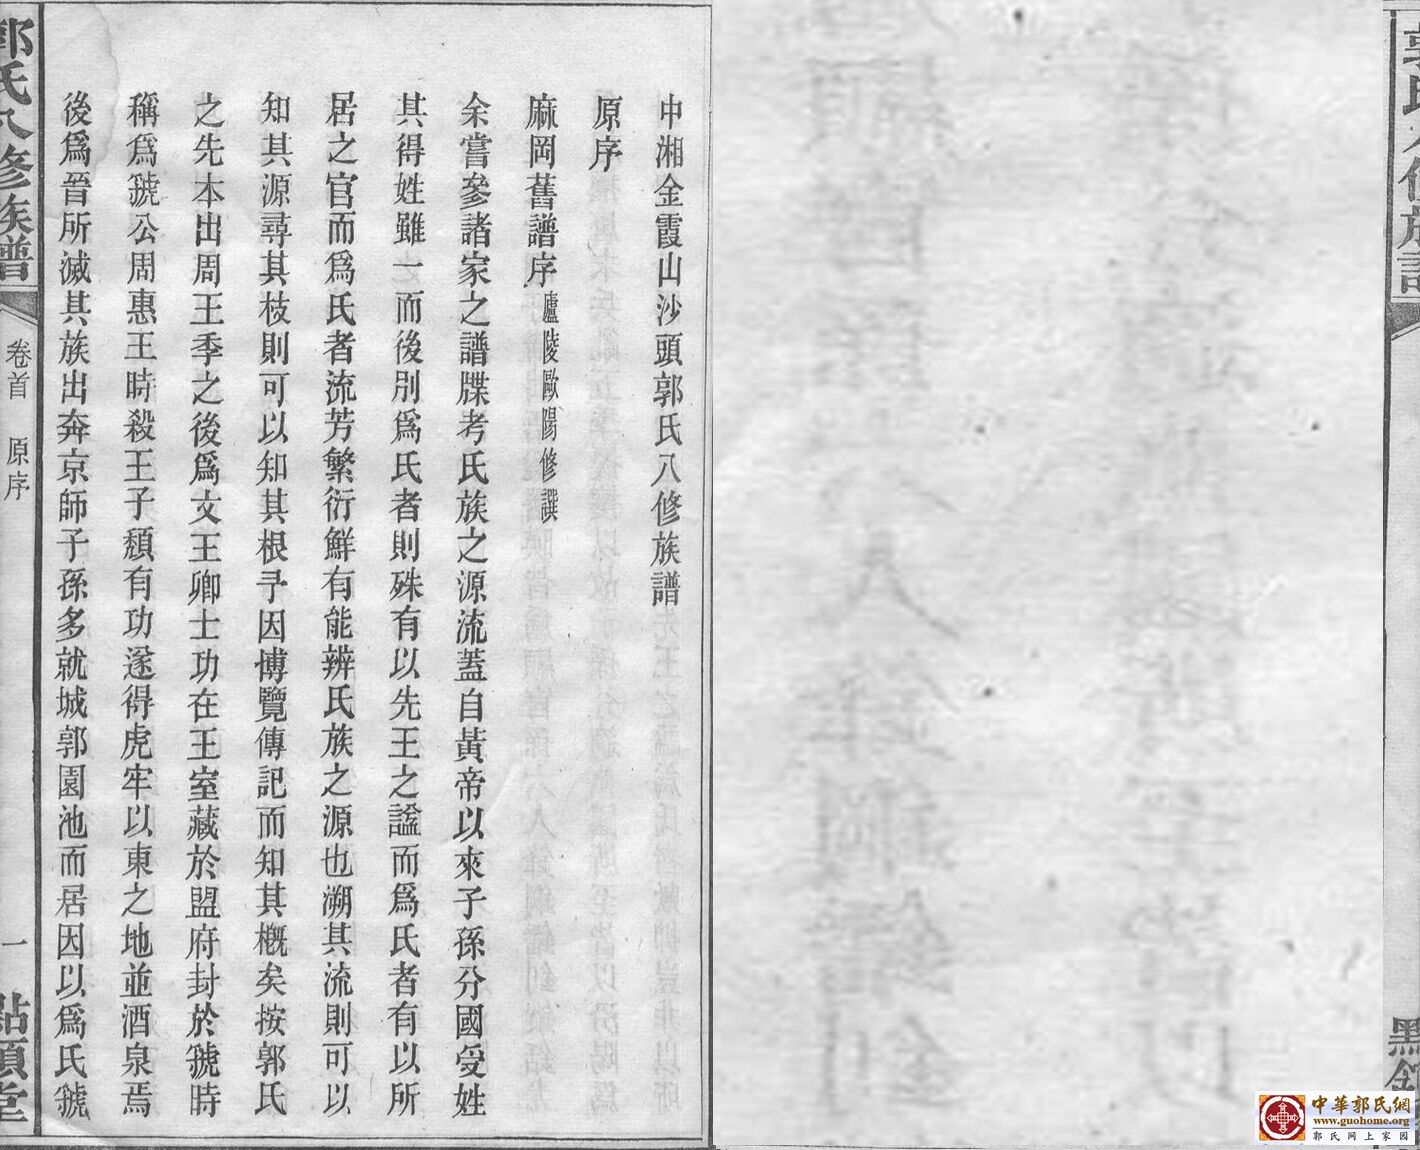 中湘金霞山沙頭郭氏八修族譜
原序
麻岡舊譜序廬陵歐陽修譔
余嘗參諸家之譜牒考氏族之源流蓋自黃帝以來子孫分國受姓
其得姓雖一而後別爲氏者則殊有以先王之謚而爲氏者有以所
居之官而爲氏者流芳繁衍鮮有能辨氏族之源也溯其流則可以
知其源尋其枝則可以知其根予因博覽傳記而知其概矣按郭氏
之先本出周王季之後爲文王卿士功在王室藏於盟府封於虢時
稱爲虢公周惠王時殺王子頹有功遂得虎牢以東之地並酒泉焉
後爲晉所滅其族出奔京師子孫多就城郭園池而居因以爲氏虢
郭氏八修族譜
卷首 原序
一
點頭堂
中華郭氏網
www.guohome.org
郭氏网上家园